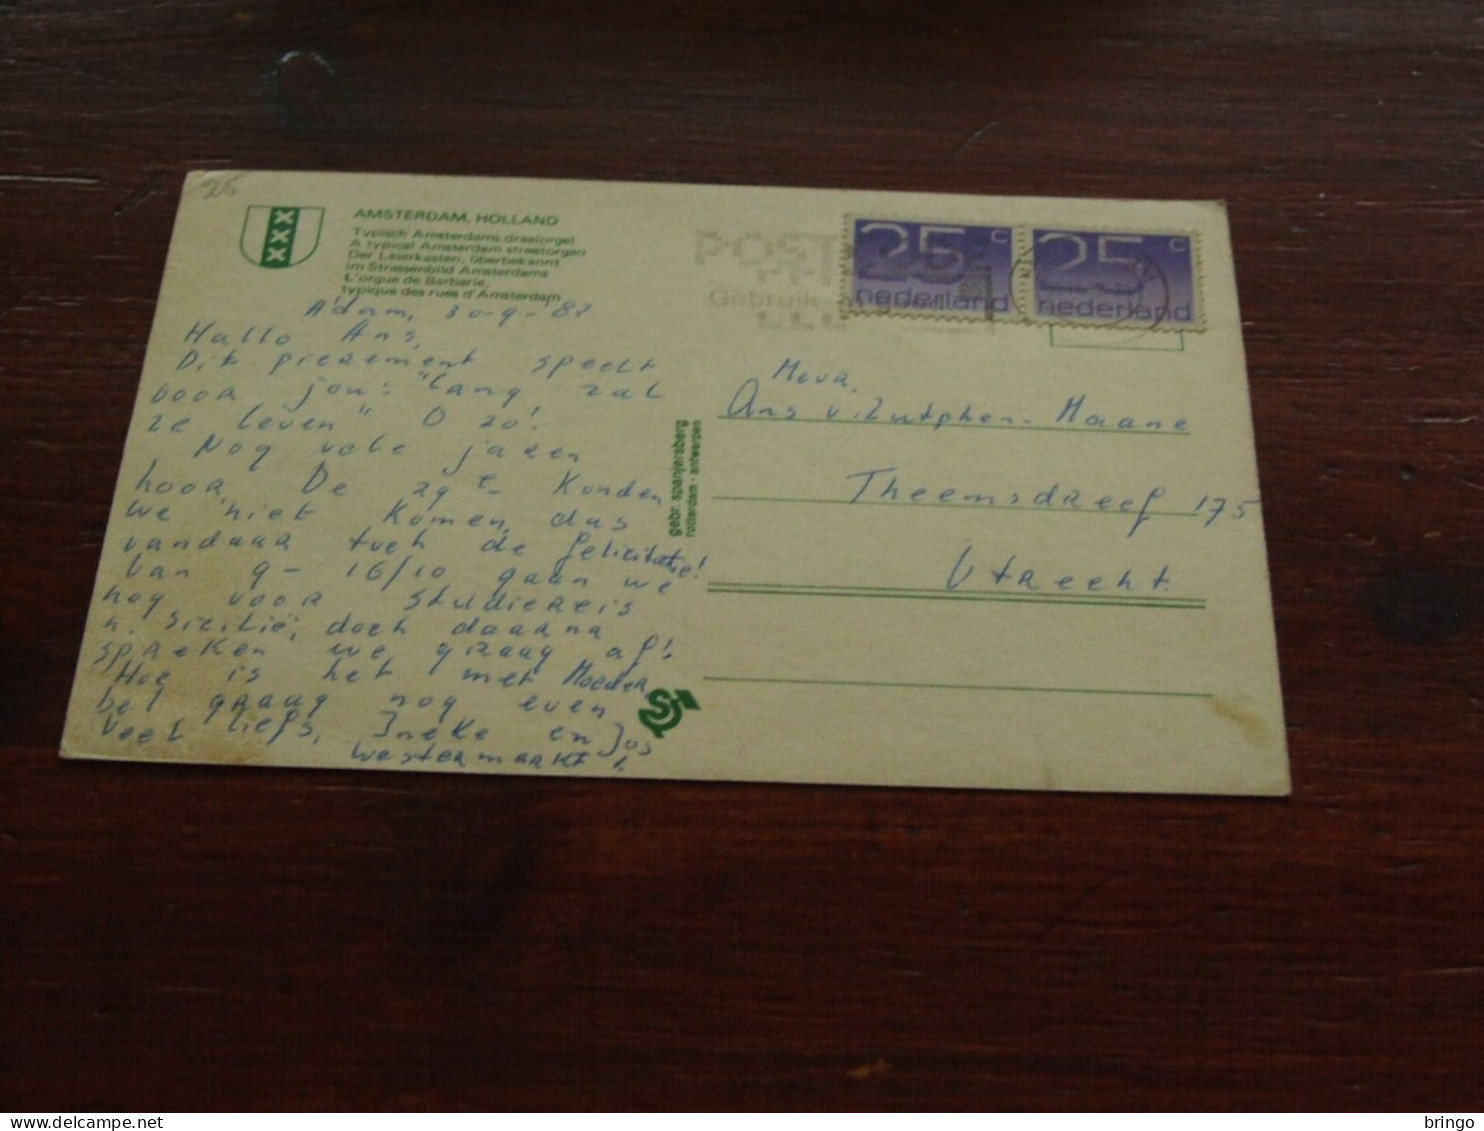 26
AMSTERDAM, HOLLAND
Typisch Amsterdams draaiorgel
A typical Amsterdam streetorgan
Der Leierkasten, überbekannt
im Strassenbild Amsterdams
L'orgue de Barbarie,
typique des rues d'Amsterdam
A'dam, 30-9-'82
Hallo Ans,
Dit pierement speelt
voor jou: "Lang zal
ze leven" O zo!
Nog vele jaren
hoor De 29e konden
we niet komen, dus
vandaar toch de felicitatie!
Van 9-16/10 gaan we
nog voor studiereis
n. Sicilië, doch daarna
spreken we graag af!
Hoe is het met Moeder,
bel graag nog even
Veel liefs, Ineke en Jos
Westermarkt!
gebr. spanjersberg
rotterdam - antwerpen
POST
Gebruik
25 c
nederland
25 c
nederland
Mevr.
Ans v. Zutphen-Maane
Theemsdreef 175
Utrecht.